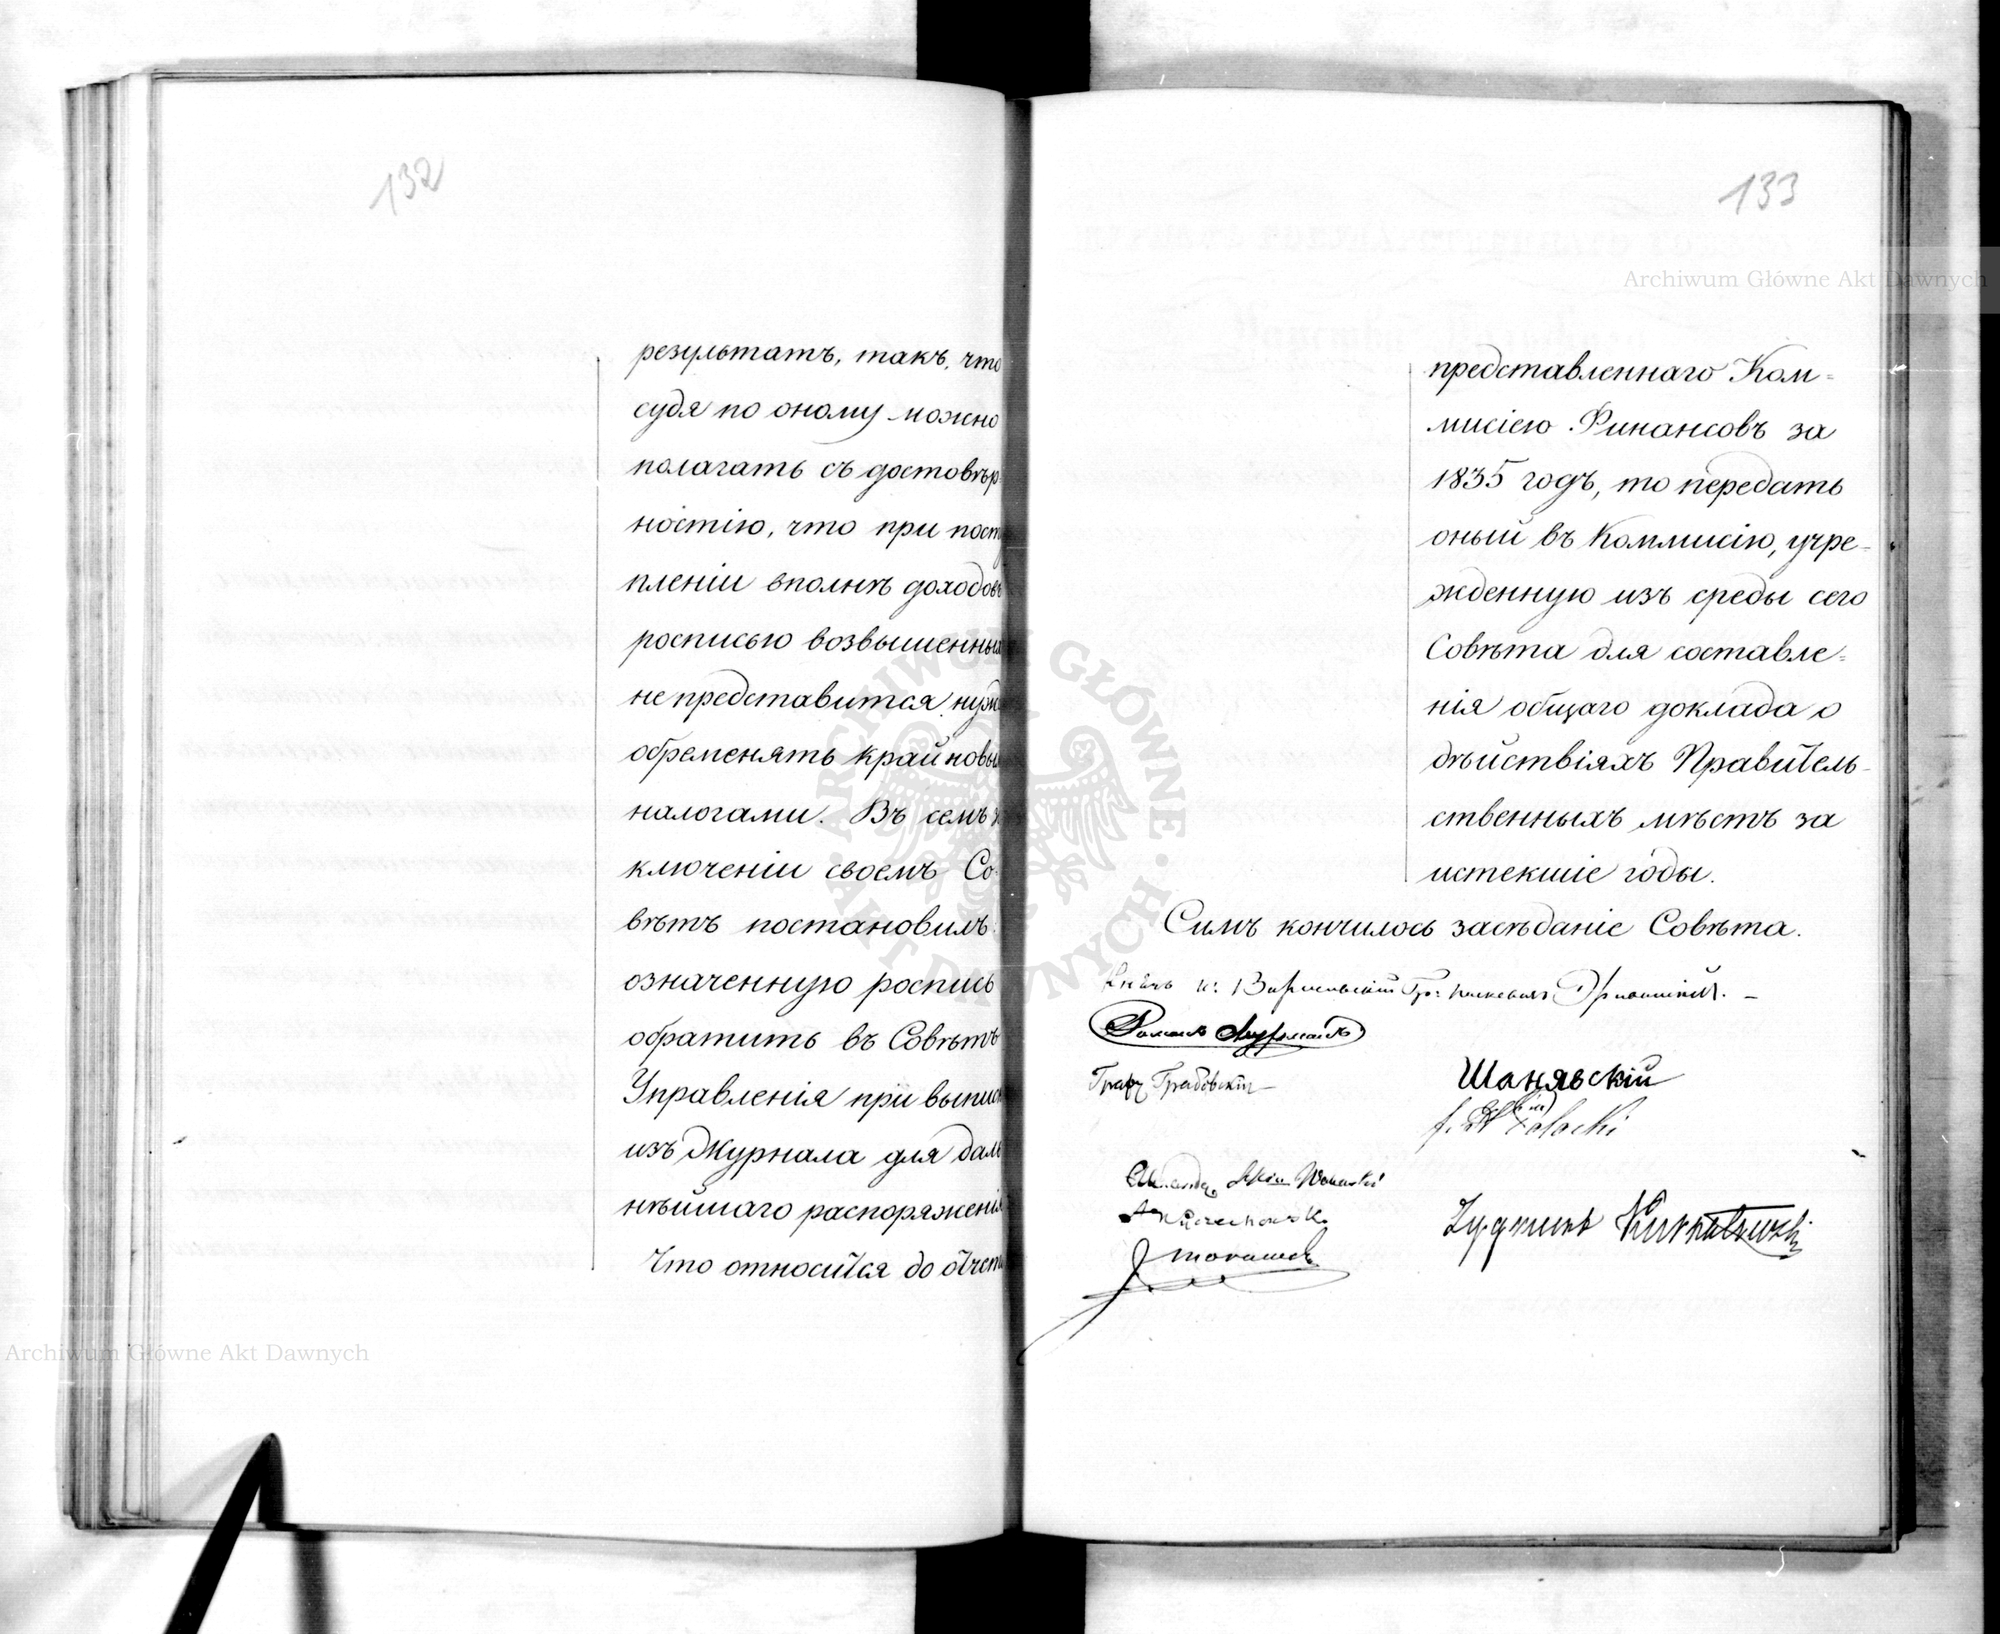 132
результатъ, такъ, что
судя по оному можно
полагать съ достовѣр
ностію, что при пост
пленіи вполнѣ доходовъ
росписью возвышенных
не представится нужд
обременять край новы
налогами. Въ семъ за
ключеніи своемъ Со-
вѣтъ постановилъ:
означенную роспись
обратить въ Совѣтъ
Управленія при выпис
изъ Журнала для даль
нѣйшаго распоряженія
Что относится до отчета
133
представленнаго Ком=
мисіею Финансовъ за
1835 годъ, то передать
оный въ Коммисію, учре-
жденную изъ среды сего
Совѣта для составле=
нія общаго доклада о
дѣйствіяхъ Правитель-
ственныхъ мѣстъ за
истекшіе годы.
Симъ кончилось засѣданіе Совѣта.
Князь Варшавскій Гр: Паскевичъ Эриванскій. —
Графъ Грабовскій
Шанявскій
Zygmunt Kurnatowski
Archiwum Główne Akt Dawnych
Archiwum Główne Akt Dawnych
ARCHIWUM GŁÓWNE AKT DAWNYCH